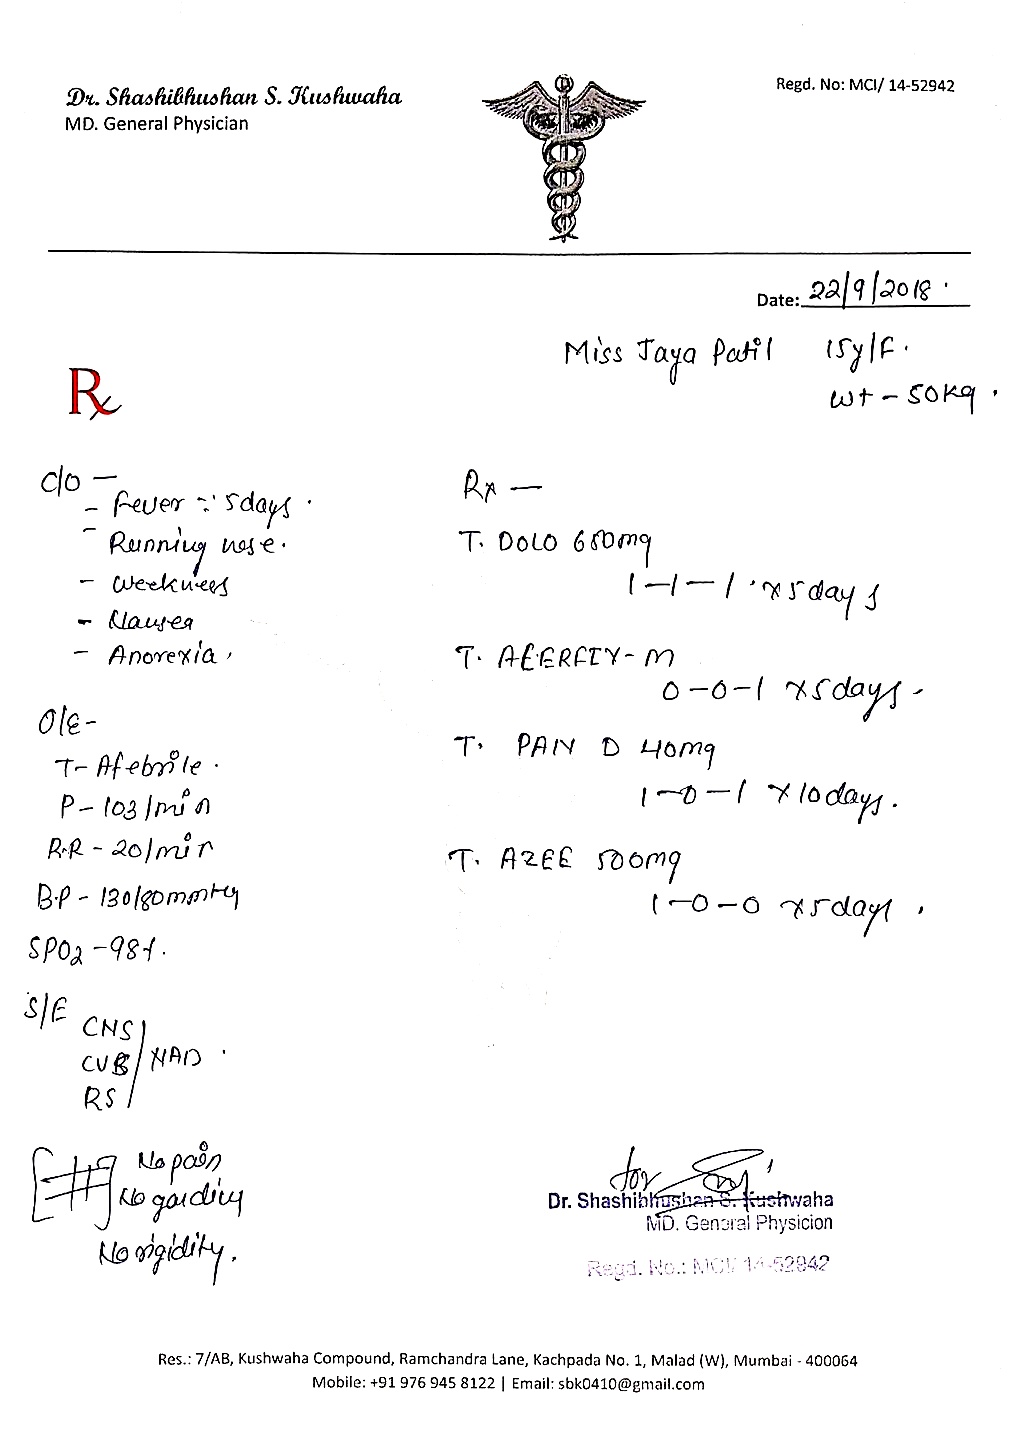 Dr. Shashibhushan S. Kushwaha
MD. General Physician
Regd. No: MCI/ 14-52942
Date: 22/9/2018.
Miss Jaya Patil 15y/F.
Wt - 50Kg.
Rx
C/O -
- Fever ∵ 5days.
- Running nose.
- Weekness
- Nausea
- Anorexia.
O/E-
T- Afebrile.
P- 103/min
R.R - 20/min
B.P - 130/80mmHg
SPO2 -98%.
S/E
CNS
CVS
RS
NAD.
No pain
No garding
No rigidity.
Rx -
T. DOLO 650mg
1-1-1 x 5days
T. 
0-0-1 x 5days.
T. PAN D 40mg
1-0-1 x 10days.
T. AZEE 500mg
1-0-0 x 5days.
for
Dr. Shashibhushan S. Kushwaha
MD. General Physicion
Regd. No.: MCI/ 14-52942
Res.: 7/AB, Kushwaha Compound, Ramchandra Lane, Kachpada No. 1, Malad (W), Mumbai - 400064
Mobile: +91 976 945 8122 | Email: sbk0410@gmail.com